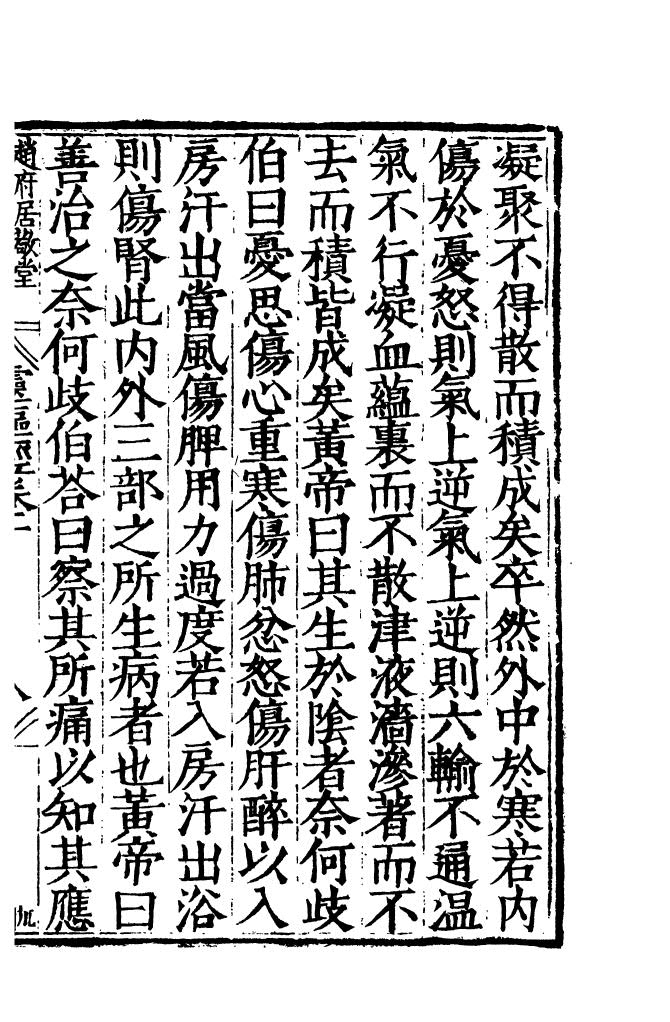 凝聚不得散而積成矣卒然外中於寒若内
傷於憂怒則氣上逆氣上逆則六輸不通温
氣不行凝血蘊裏而不散津液濇滲著而不
去而積皆成矣黃帝曰其生於隂者奈何歧
伯曰憂思傷心重寒傷肺忿怒傷肝醉以入
房汗出當風傷脾用力過度若入房汗出浴
則傷腎此内外三部之所生病者也黃帝曰
善治之奈何歧伯荅曰察其所痛以知其應
趙府居敬堂